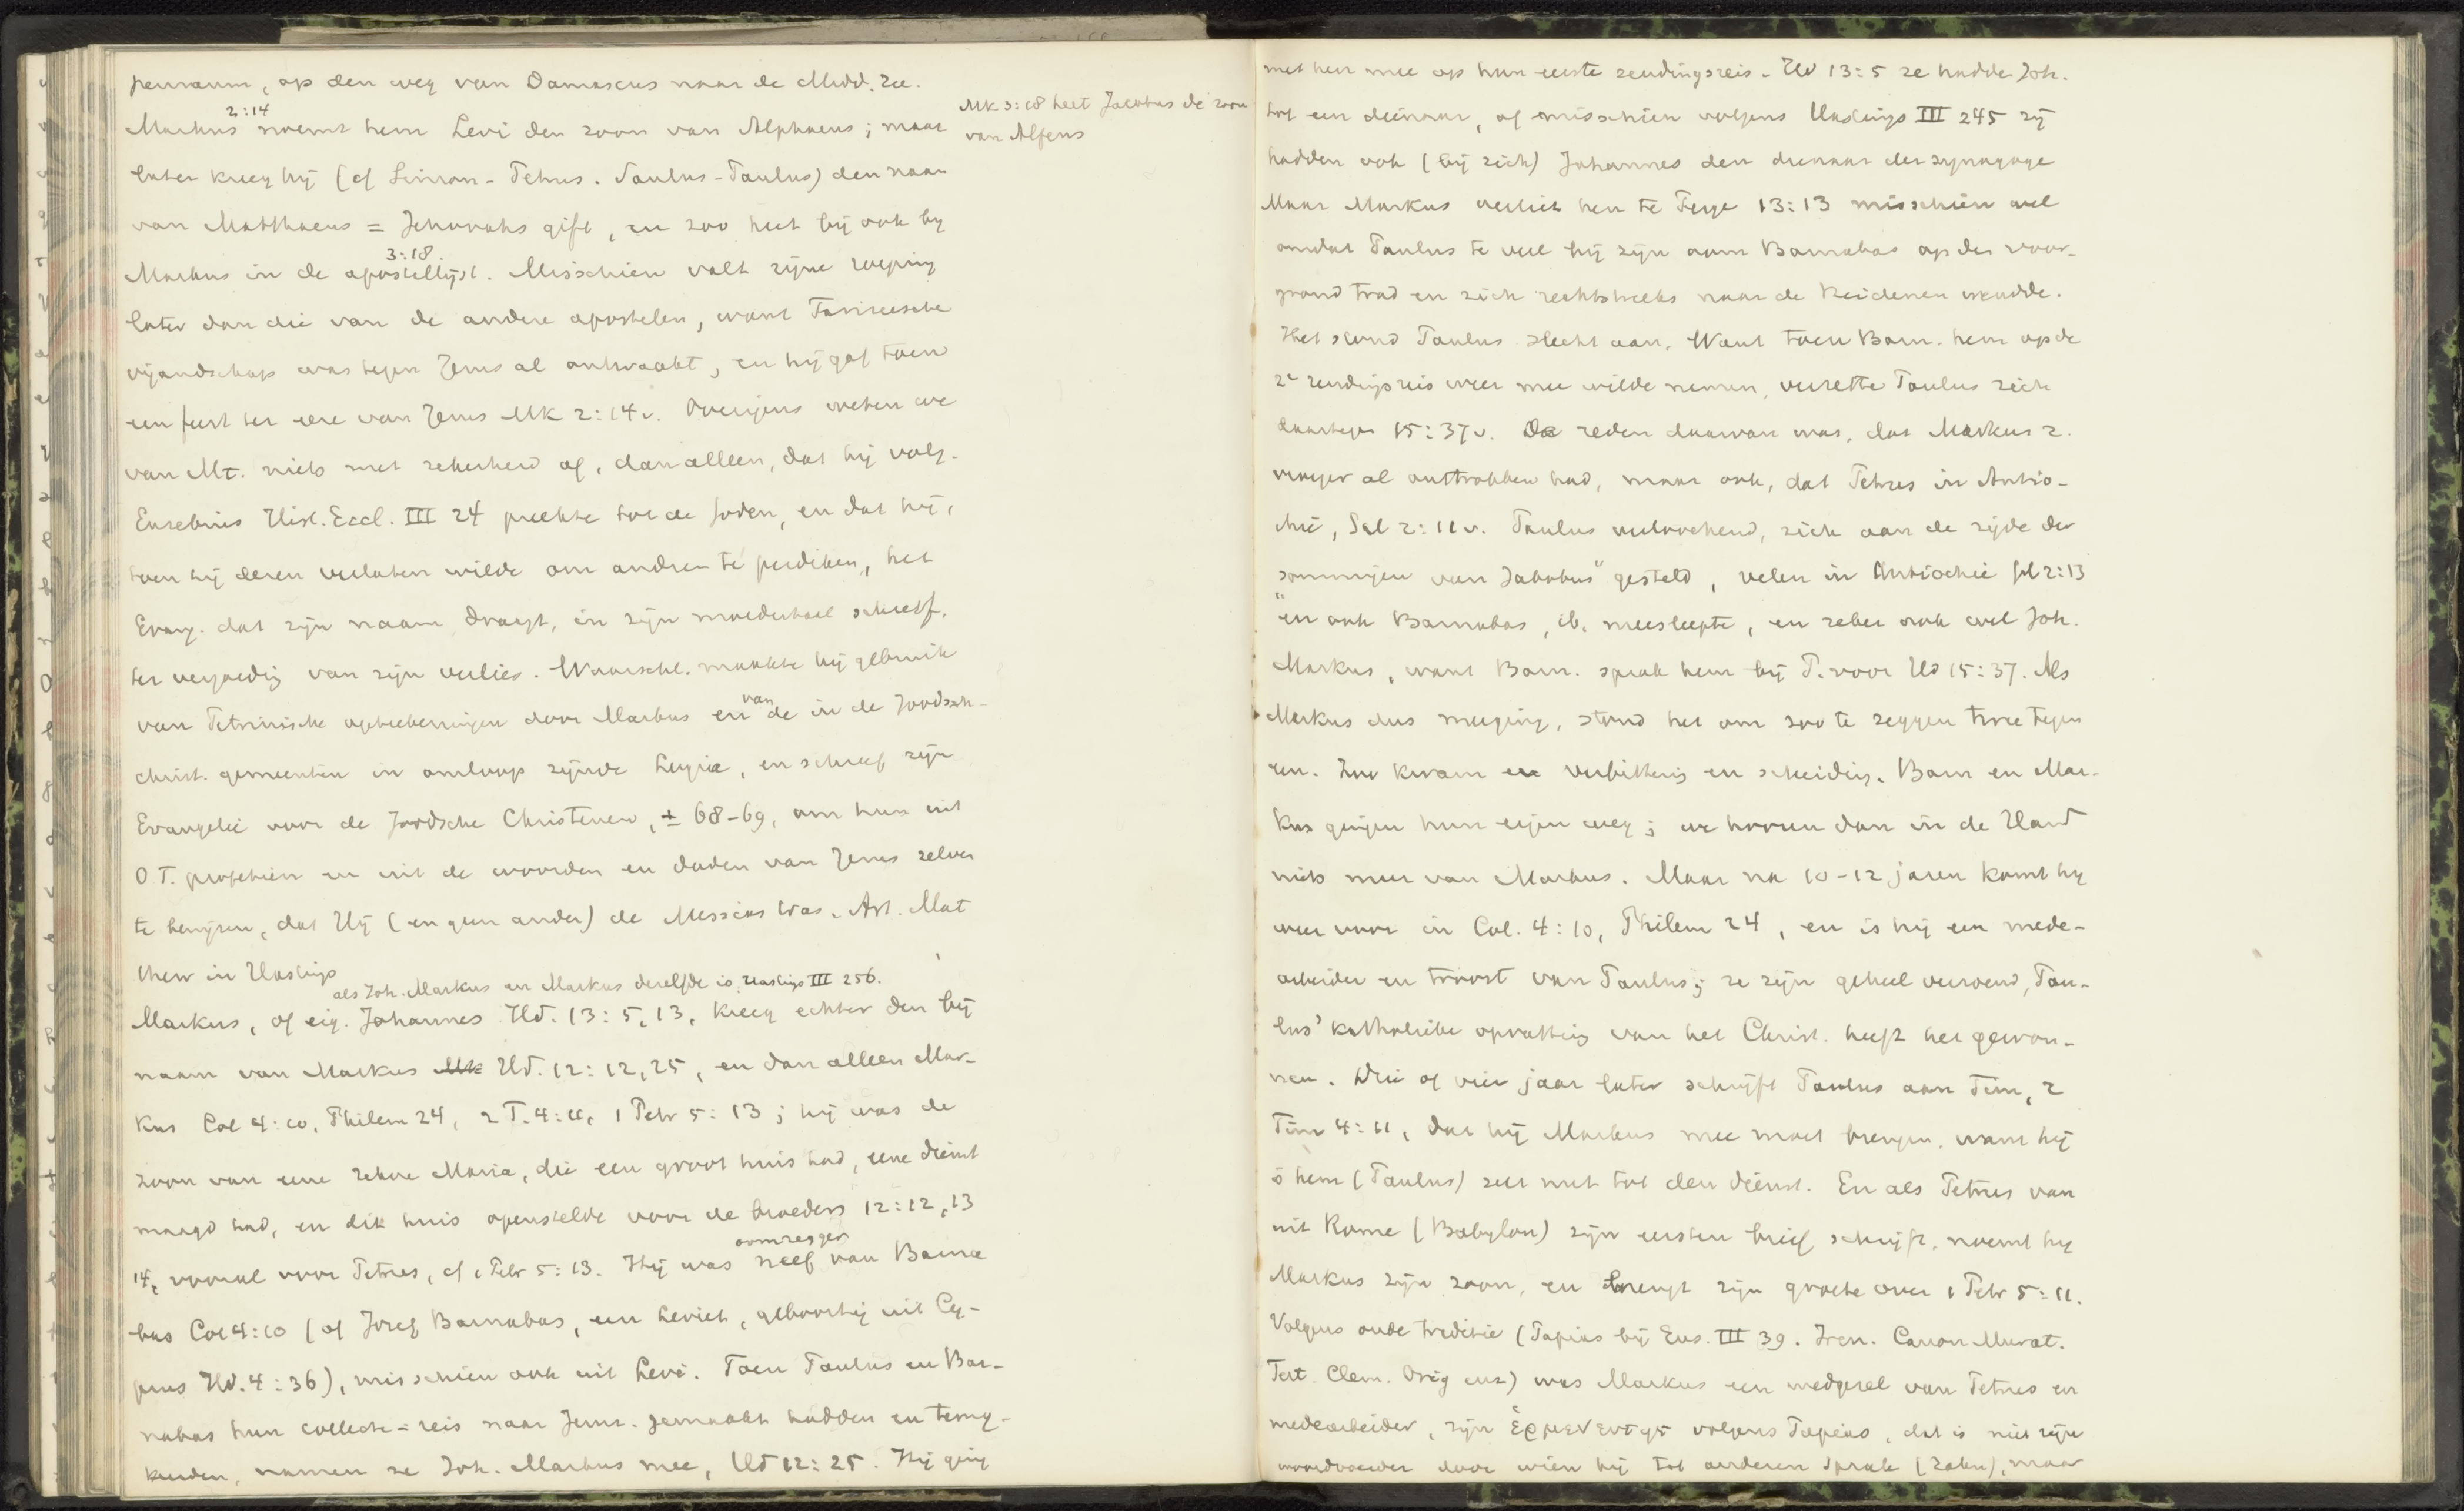 pernaum, op den weg van Damascus naar de Midd. Zee.
2:14
Markus noemt hem Levi den zoon van Alphaeus; maar
Mk 3:18 heet Jacobus de zoon
van Alfeus
later kreeg hij (cf Simon-Petrus. Saulus-Paulus) den naam
van Matthaeus = Jehovahs gift, en zoo heet hij ook bij
3:18.
Markus in de apostellijst. Misschien valt zijne roeping
later dan die van de andere apostelen, want Farizeesche
vijandschap was tegen Jezus al ontwaakt, en hij gaf toen
een feest ter eere van Jezus Mk 2:14v. Overigens weten we
van Mt. niets met zekerheid af, dan alleen, dat hij volg.
Eusebius Hist. Eccl. III 24 preekte tot de Joden, en dat hij,
toen hij dezen verlaten wilde om andren te prediken, het
Evang. dat zijn naam draagt, in zijn moedertaal schreef,
ter vergoedig van zijn verlies. Waarschl. maakte hij gebruik
van
van Petrinische opteekeningen door Markus en de in de Joodsch-
christ. gemeenten in omloop zijnde Logia, en schreef zijn
Evangelie voor de Joodsche Christenen, ± 68-69, om hun uit
O T. profetieën en uit de woorden en daden van Jezus zelven
te bewijzen, dat Hij (en geen ander) de Messias was. Art. Mat
thew in Hastings
als Joh. Markus en Markus dezelfde is, Hastings III 256.
Markus, of eig. Johannes Hd. 13:5,13, kreeg echter den bij
naam van Markus Mk Hd. 12:12,25, en dan alleen Mar-
kus Col 4:10, Philem 24, 2 T. 4:11, 1 Petr 5:13; hij was de
zoon van eene zekere Maria, die een groot huis had, eene dienst
maagd had, en dik huis openstelde voor de broeders 12:12,13
oomzegger
14, vooral voor Petrus, cf 1 Petr 5:13. Hij was neef van Barna
bas Col 4:10 (of Jozef Barnabas, een Leviet, geboortig uit Cy-
prus Hd. 4:36), misschien ook uit Levi. Toen Paulus en Bar-
nabas hun collecte-reis naar Jeruz. gemaakt hadden en terug-
keerden, namen ze Joh. Markus mee, Hd 12:25. Hij ging
met hen mee op hun eerste zendingsreis. Hd 13:5 ze hadde Joh.
tot een dienaar, of misschien volgens Hastings III 245 zij
hadden ook (bij zich) Johannes den dienaar der synagoge
Maar Markus verliet hen te Perge 13:13 misschien wel
omdat Paulus te veel bij zijn oom Barnabas op den voor-
grond trad en zich rechtstreeks naar de Heidenen wendde.
Het stond Paulus slecht aan. Want toen Barn. hem op de
2e zendingsreis weer mee wilde nemen, verzette Paulus zich
daartegen 15:37v. De reden daarvan was, dat Markus z.
vroeger al onttrokken had, maar ook, dat Petrus in Antio-
chië, Gal 2:11v. Paulus verloochend, zich aan de zijde der
sommigen van Jakobus" gesteld, velen in Antiochie Gal 2:13
"en ook Barnabas, ib. meesleepte, en zeker ook wel Joh.
Markus, want Barn. sprak hem bij P. voor Hd 15:37. Als
Markus dus meeging, stond het om zoo te zeggen twee tegen
een. Zoo kwam er verbittering en scheiding. Barn en Mar-
kus gingen hun eigen weg; we hooren dan in de Hand
niets meer van Markus. Maar na 10-12 jaren komt hij
weer voor in Col. 4:10, Philem 24, en is hij een mede-
arbeider en troost van Paulus; ze zijn geheel verzoend, Pau-
lus' katholieke opvatting van het Christ. heeft het gewon-
nen. Drie of vier jaar later schrijft Paulus aan Tim, 2
Tim 4:11, dat hij Markus mee moet brengen, want hij
is hem (Paulus) zeer nut tot den dienst. En als Petrus van
uit Rome (Babylon) zijn eersten brief schrijft, noemt hij
Markus zijn zoon, en brengt zijn groete over 1 Petr 5:11.
Volgens oude traditie (Papias bij Eus. III 39. Iren. Canon Murat.
Tert. Clem. Orig enz) was Markus een medgezel van Petrus en
medearbeider, zijn ἑρμενευτης volgens Papias, dat is niet zijn
woordvoerder door wien hij tot anderen sprak (Zahn), maar